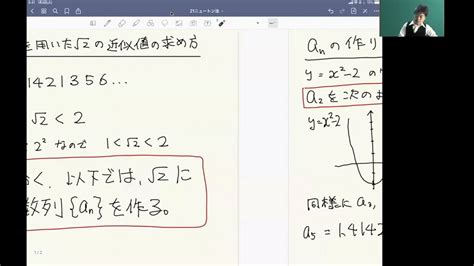 を用いた√2の近似値の求め方
1421356...
√2 < 2
2² なので 1<√2<2
く、以下では、√2に
数列{aₙ}を作る。
1/2
aₙの作り
y=x²-2の
a₂を次のよ
y=x²-2
同様にa₃,
a₅=1.4142